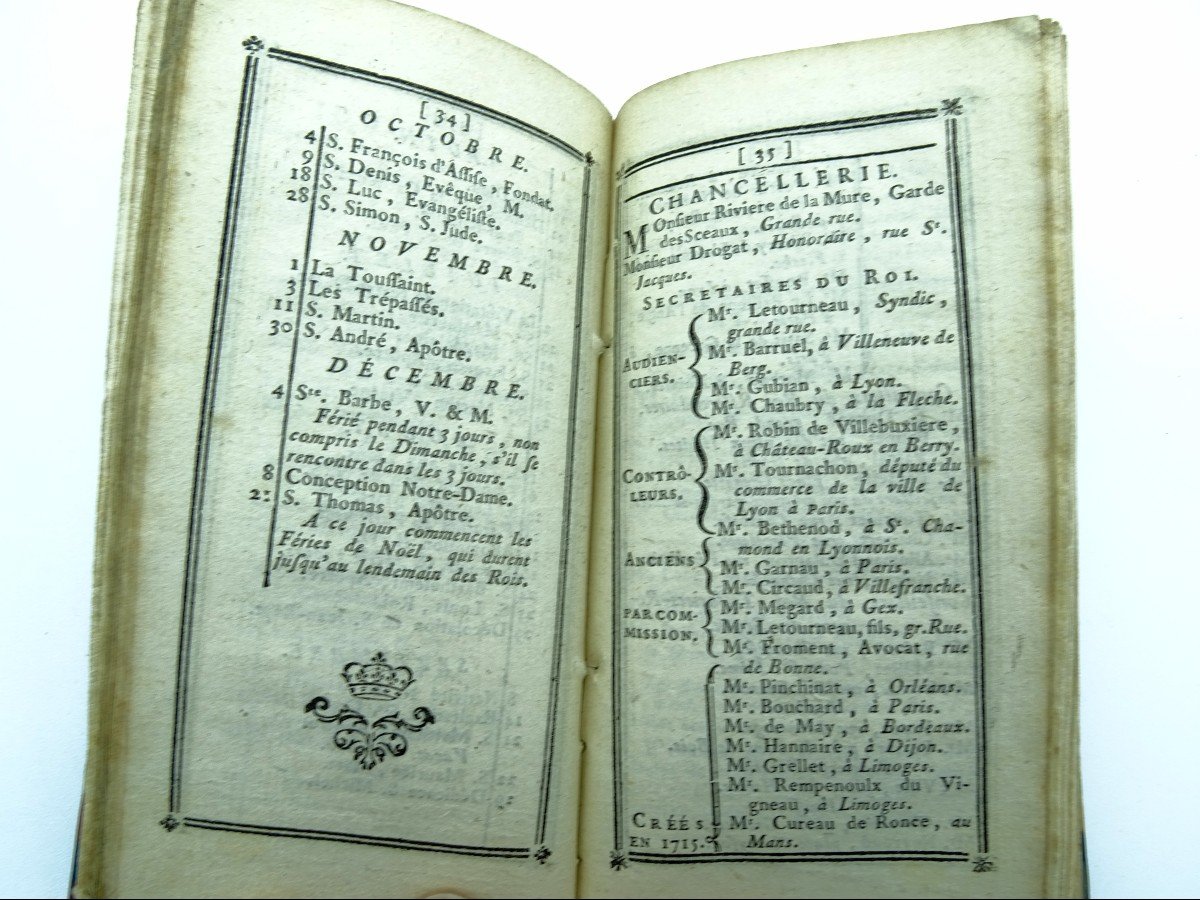 [ 34 ]
OCTOBRE.
4 S. François d'Assise, Fondat.
9 S. Denis, Evêque, M.
18 S. Luc, Evangéliste.
28 S. Simon, S. Jude.
NOVEMBRE.
1 La Toussaint.
3 Les Trépassés.
11 S. Martin.
30 S. André, Apôtre.
DÉCEMBRE.
4 Ste. Barbe, V. & M.
Férié pendant 3 jours, non
compris le Dimanche, s'il se
rencontre dans les 3 jours.
8 Conception Notre-Dame.
21 S. Thomas, Apôtre.
A ce jour commencent les
Féries de Noël, qui durent
jusqu'au lendemain des Rois.
[ 35 ]
CHANCELLERIE.
MOnsieur Riviere de la Mure, Garde
des Sceaux, Grande rue.
Monsieur Drogat, Honoraire, rue St.
Jacques.
SECRETAIRES DU ROI.
Mr. Letourneau, Syndic,
grande rue.
AUDIEN- Mr. Barruel, à Villeneuve de
CIERS. Berg.
Mr. Gubian, à Lyon.
Mr. Chaubry, à la Fleche.
Mr. Robin de Villebuxiere,
à Château-Roux en Berry.
CONTRÔ- Mr. Tournachon, député du
LEURS. commerce de la ville de
Lyon à Paris.
Mr. Bethenod, à St. Cha-
mond en Lyonnois.
ANCIENS Mr. Garnau, à Paris.
Mr. Circaud, à Villefranche.
PAR COM- Mr. Megard, à Gex.
MISSION. Mr. Letourneau, fils, gr. Rue.
Mr. Froment, Avocat, rue
de Bonne.
Mr. Pinchinat, à Orléans.
Mr. Bouchard, à Paris.
Mr. de May, à Bordeaux.
Mr. Hannaire, à Dijon.
Mr. Grellet, à Limoges.
Mr. Rempenoulx du Vi-
gneau, à Limoges.
CRÉÉS Mr. Cureau de Ronce, au
EN 1715. Mans.